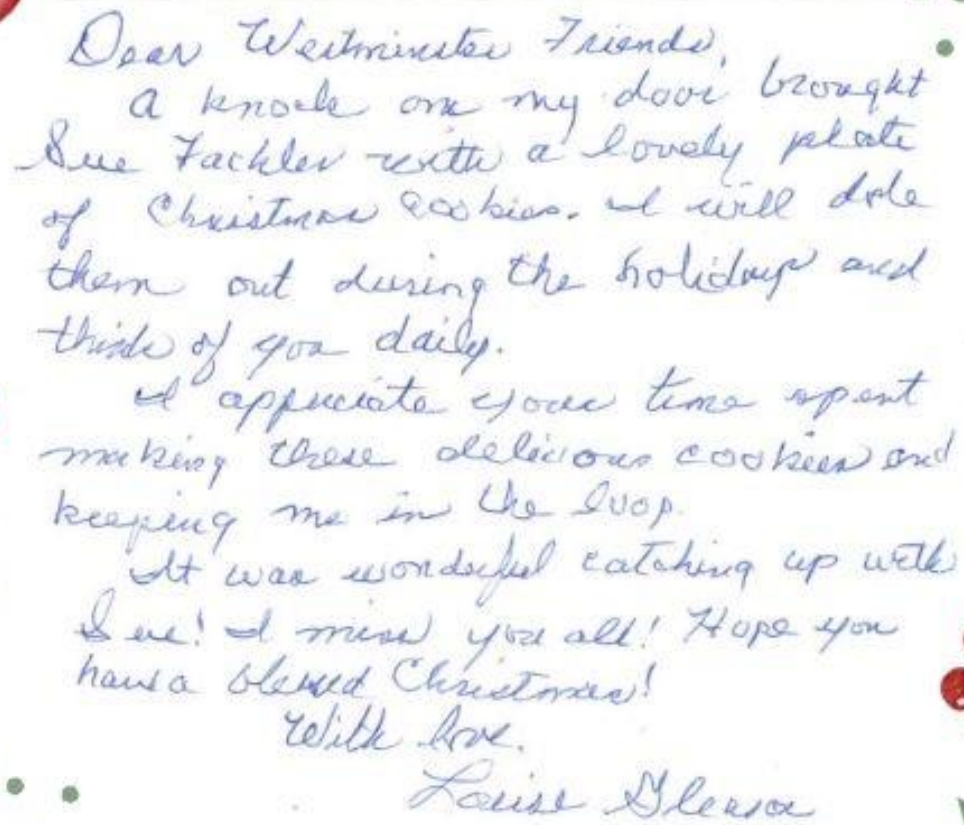 Dear Westminster Friends,
A knock on my door brought
Sue Fackler with a lovely plate
of Christmas cookies. I will dole
them out during the holidays and
think of you daily.
I appreciate your time spent
making these delicious cookies and
keeping me in the loop.
It was wonderful catching up with
Sue! I miss you all! Hope you
have a blessed Christmas!
With love,
Louise Gleason